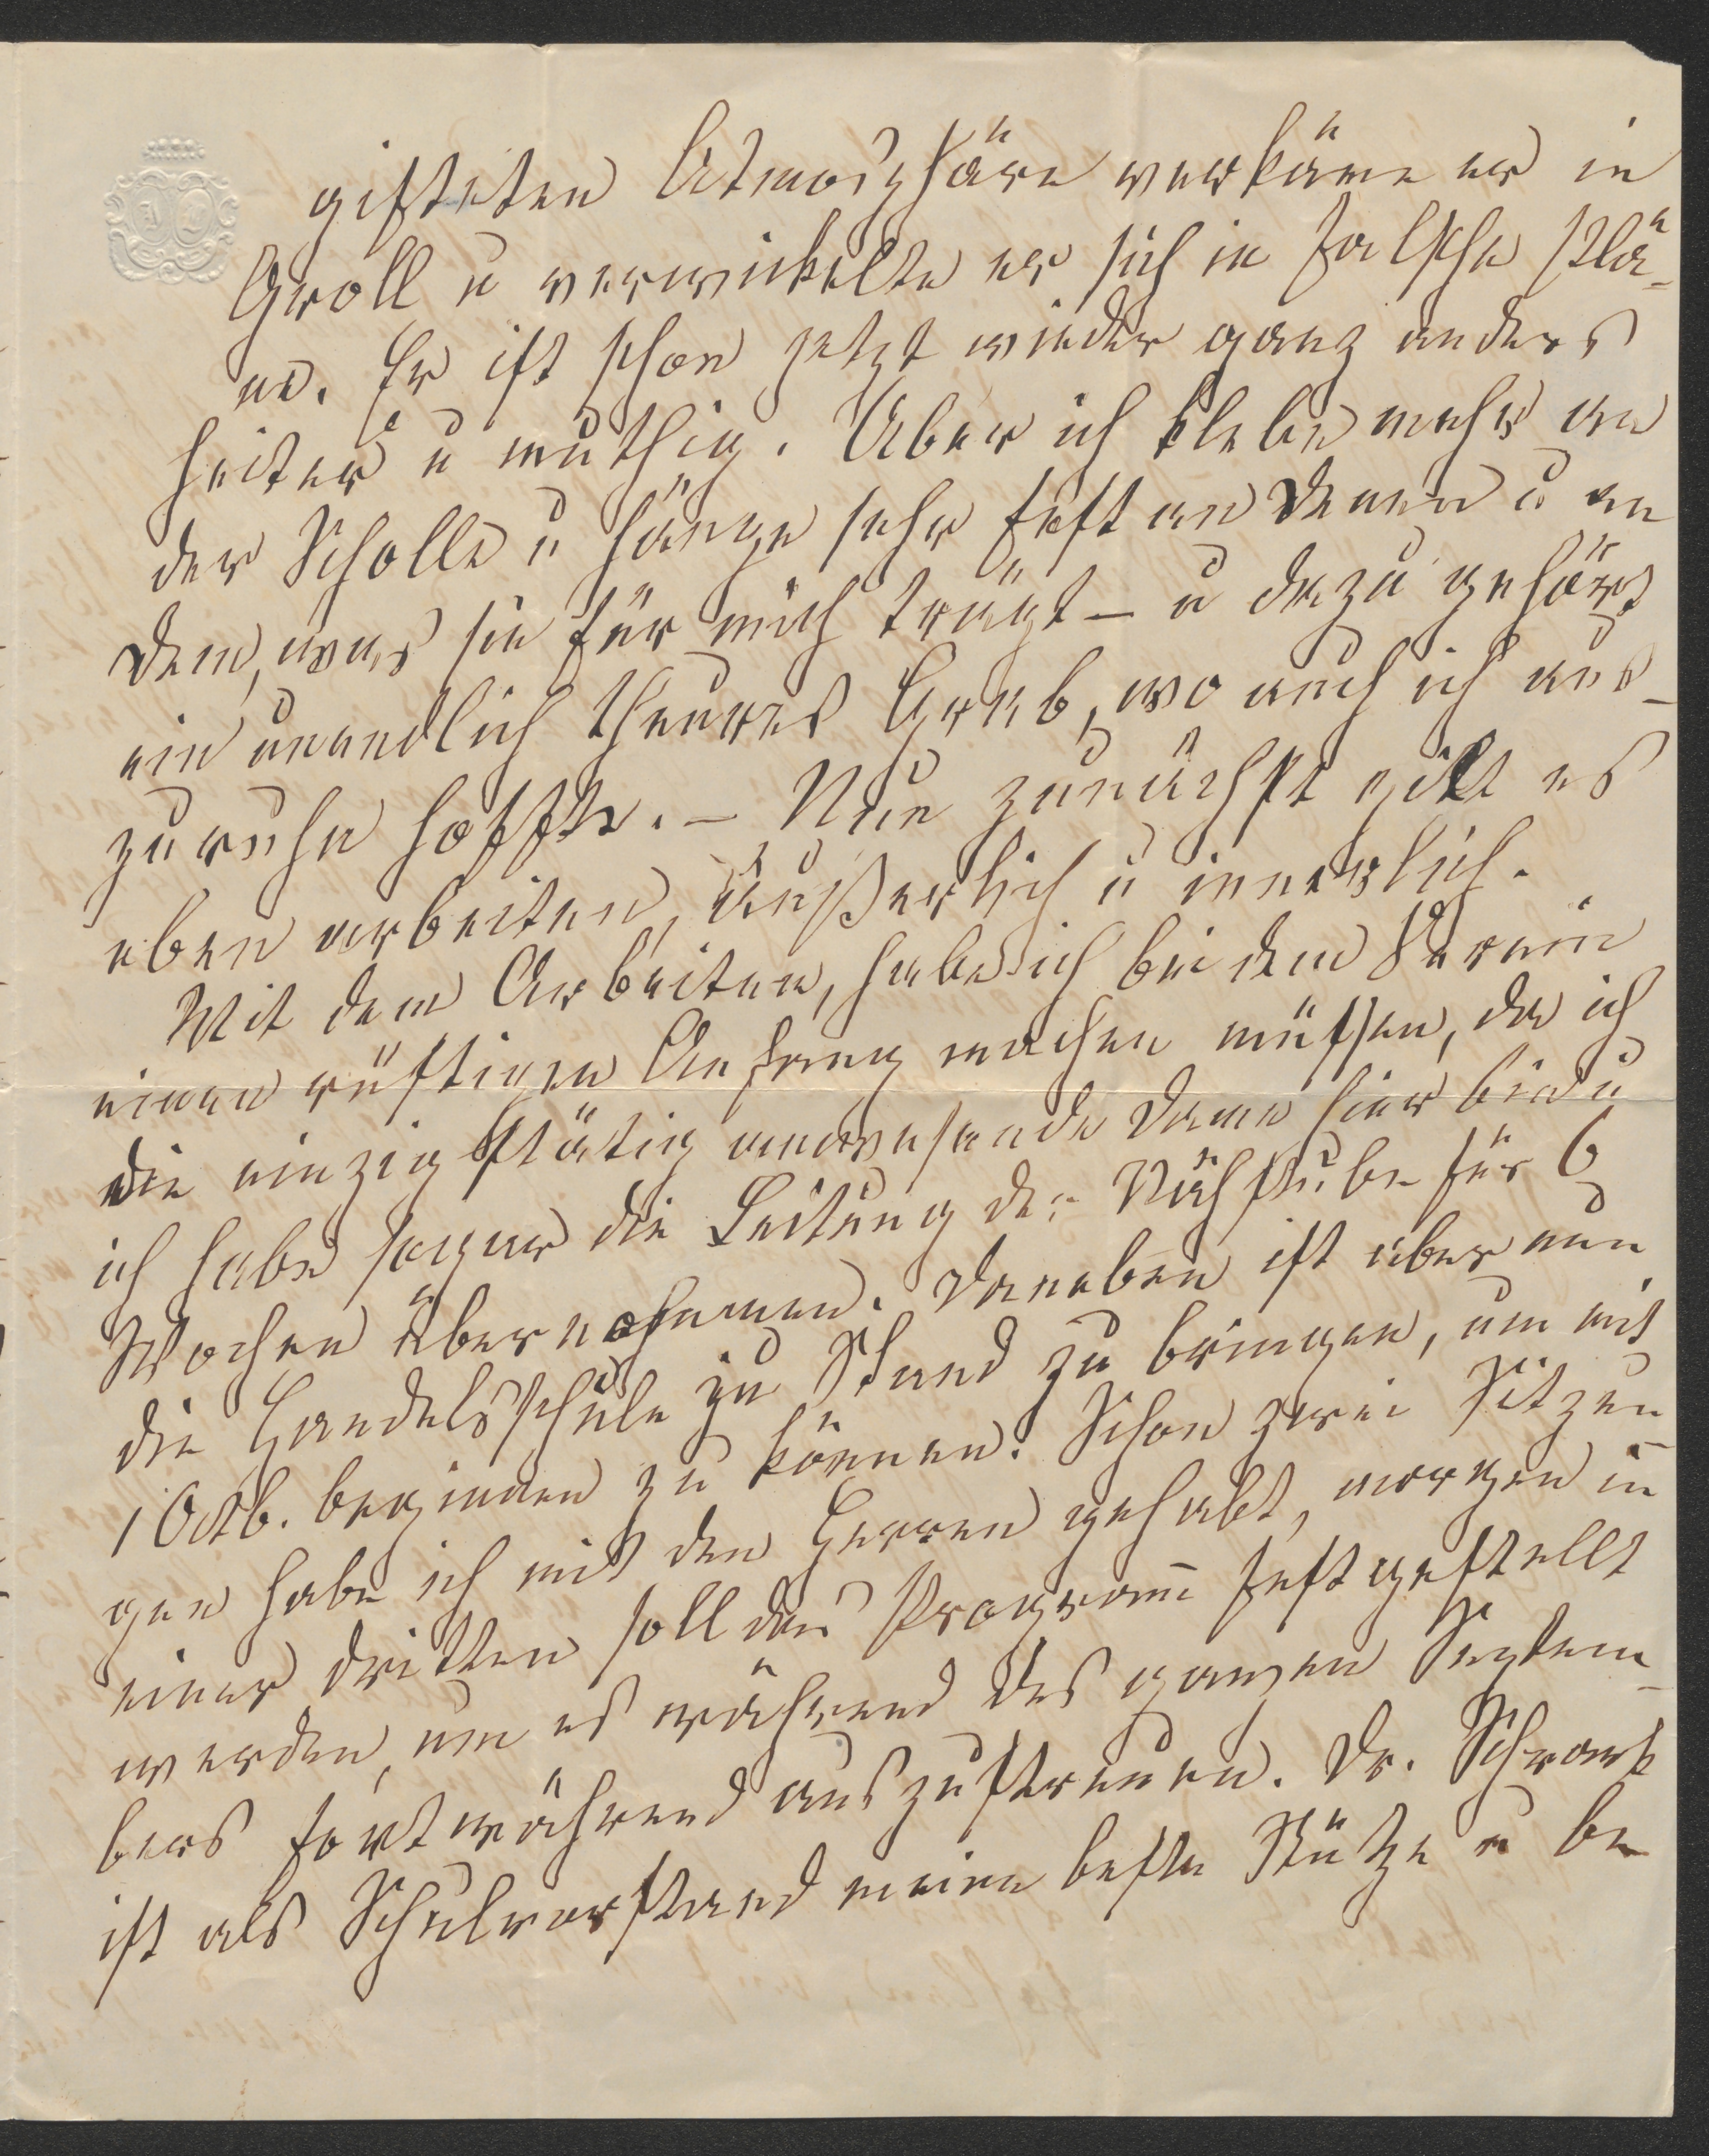 gifteten Atmosphäre verkäme er in
Groll u verwickelte er sich in falsche Plä-
ne. Er ist schon jetzt wieder ganz anders
heiter u muthig. Aber ich klebe mehr an
der Scholle u hänge sehr fest an denen u an
dem, was sie für mich trägt – u dazu gehört
ein unendlich theures Grab, wo auch ich aus-
zuruhn hoffte. – Nun zunächst gilt es
eben arbeiten, äußerlich u innerlich.
Mit dem Arbeiten, habe ich bei dem Verein
einen rüstigen Anfang machen müssen, da ich
die einzig stätig anwesende Dame hier bin u
ich habe sogar die Leitung der Nähstube für 6
Wochen übernohmen. Daneben ist aber nun
die Handelsschule zu Stand zu bringen, um mit
1 Octb. beginnen zu können. Schon zwei Sitzun
gen habe ich mit den Herren gehabt, morgen in
einer dritten soll das Program̅ festgestellt
werden, um es während des ganzen Septem-
bers fortwährend auszustreuen. Dr.
ist als Schulvorstand meine beste Stütze u be